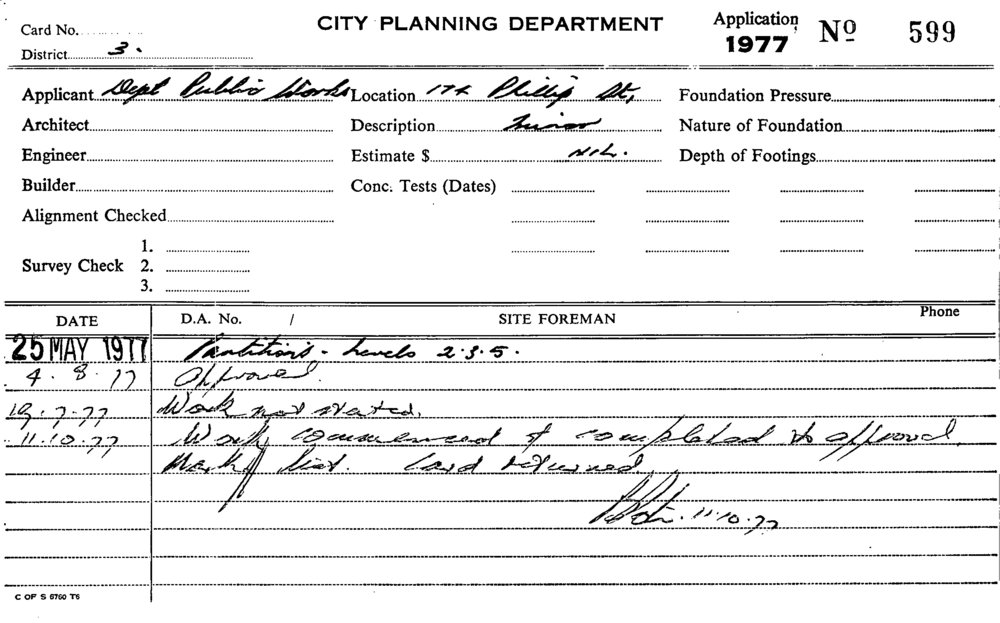 Card No. CITY PLANNING DEPARTMENT Application 1977 No 599
District 3.
Applicant Dept Public Works Location 17A Phillip St, Foundation Pressure
Architect Description Minor Nature of Foundation
Engineer Estimate $ NIL. Depth of Footings
Builder Conc. Tests (Dates)
Alignment Checked
1.
Survey Check 2.
3.
DATE D.A. No. / SITE FOREMAN Phone
25 MAY 1977 Partitions - Levels 2.3.5.
4. 8. 77 Approved.
19.7.77 Work not started.
11.10.77 Work commenced & completed to approval.
Mark off list. Card returned.
11.10.77
C OF S 6760 T6